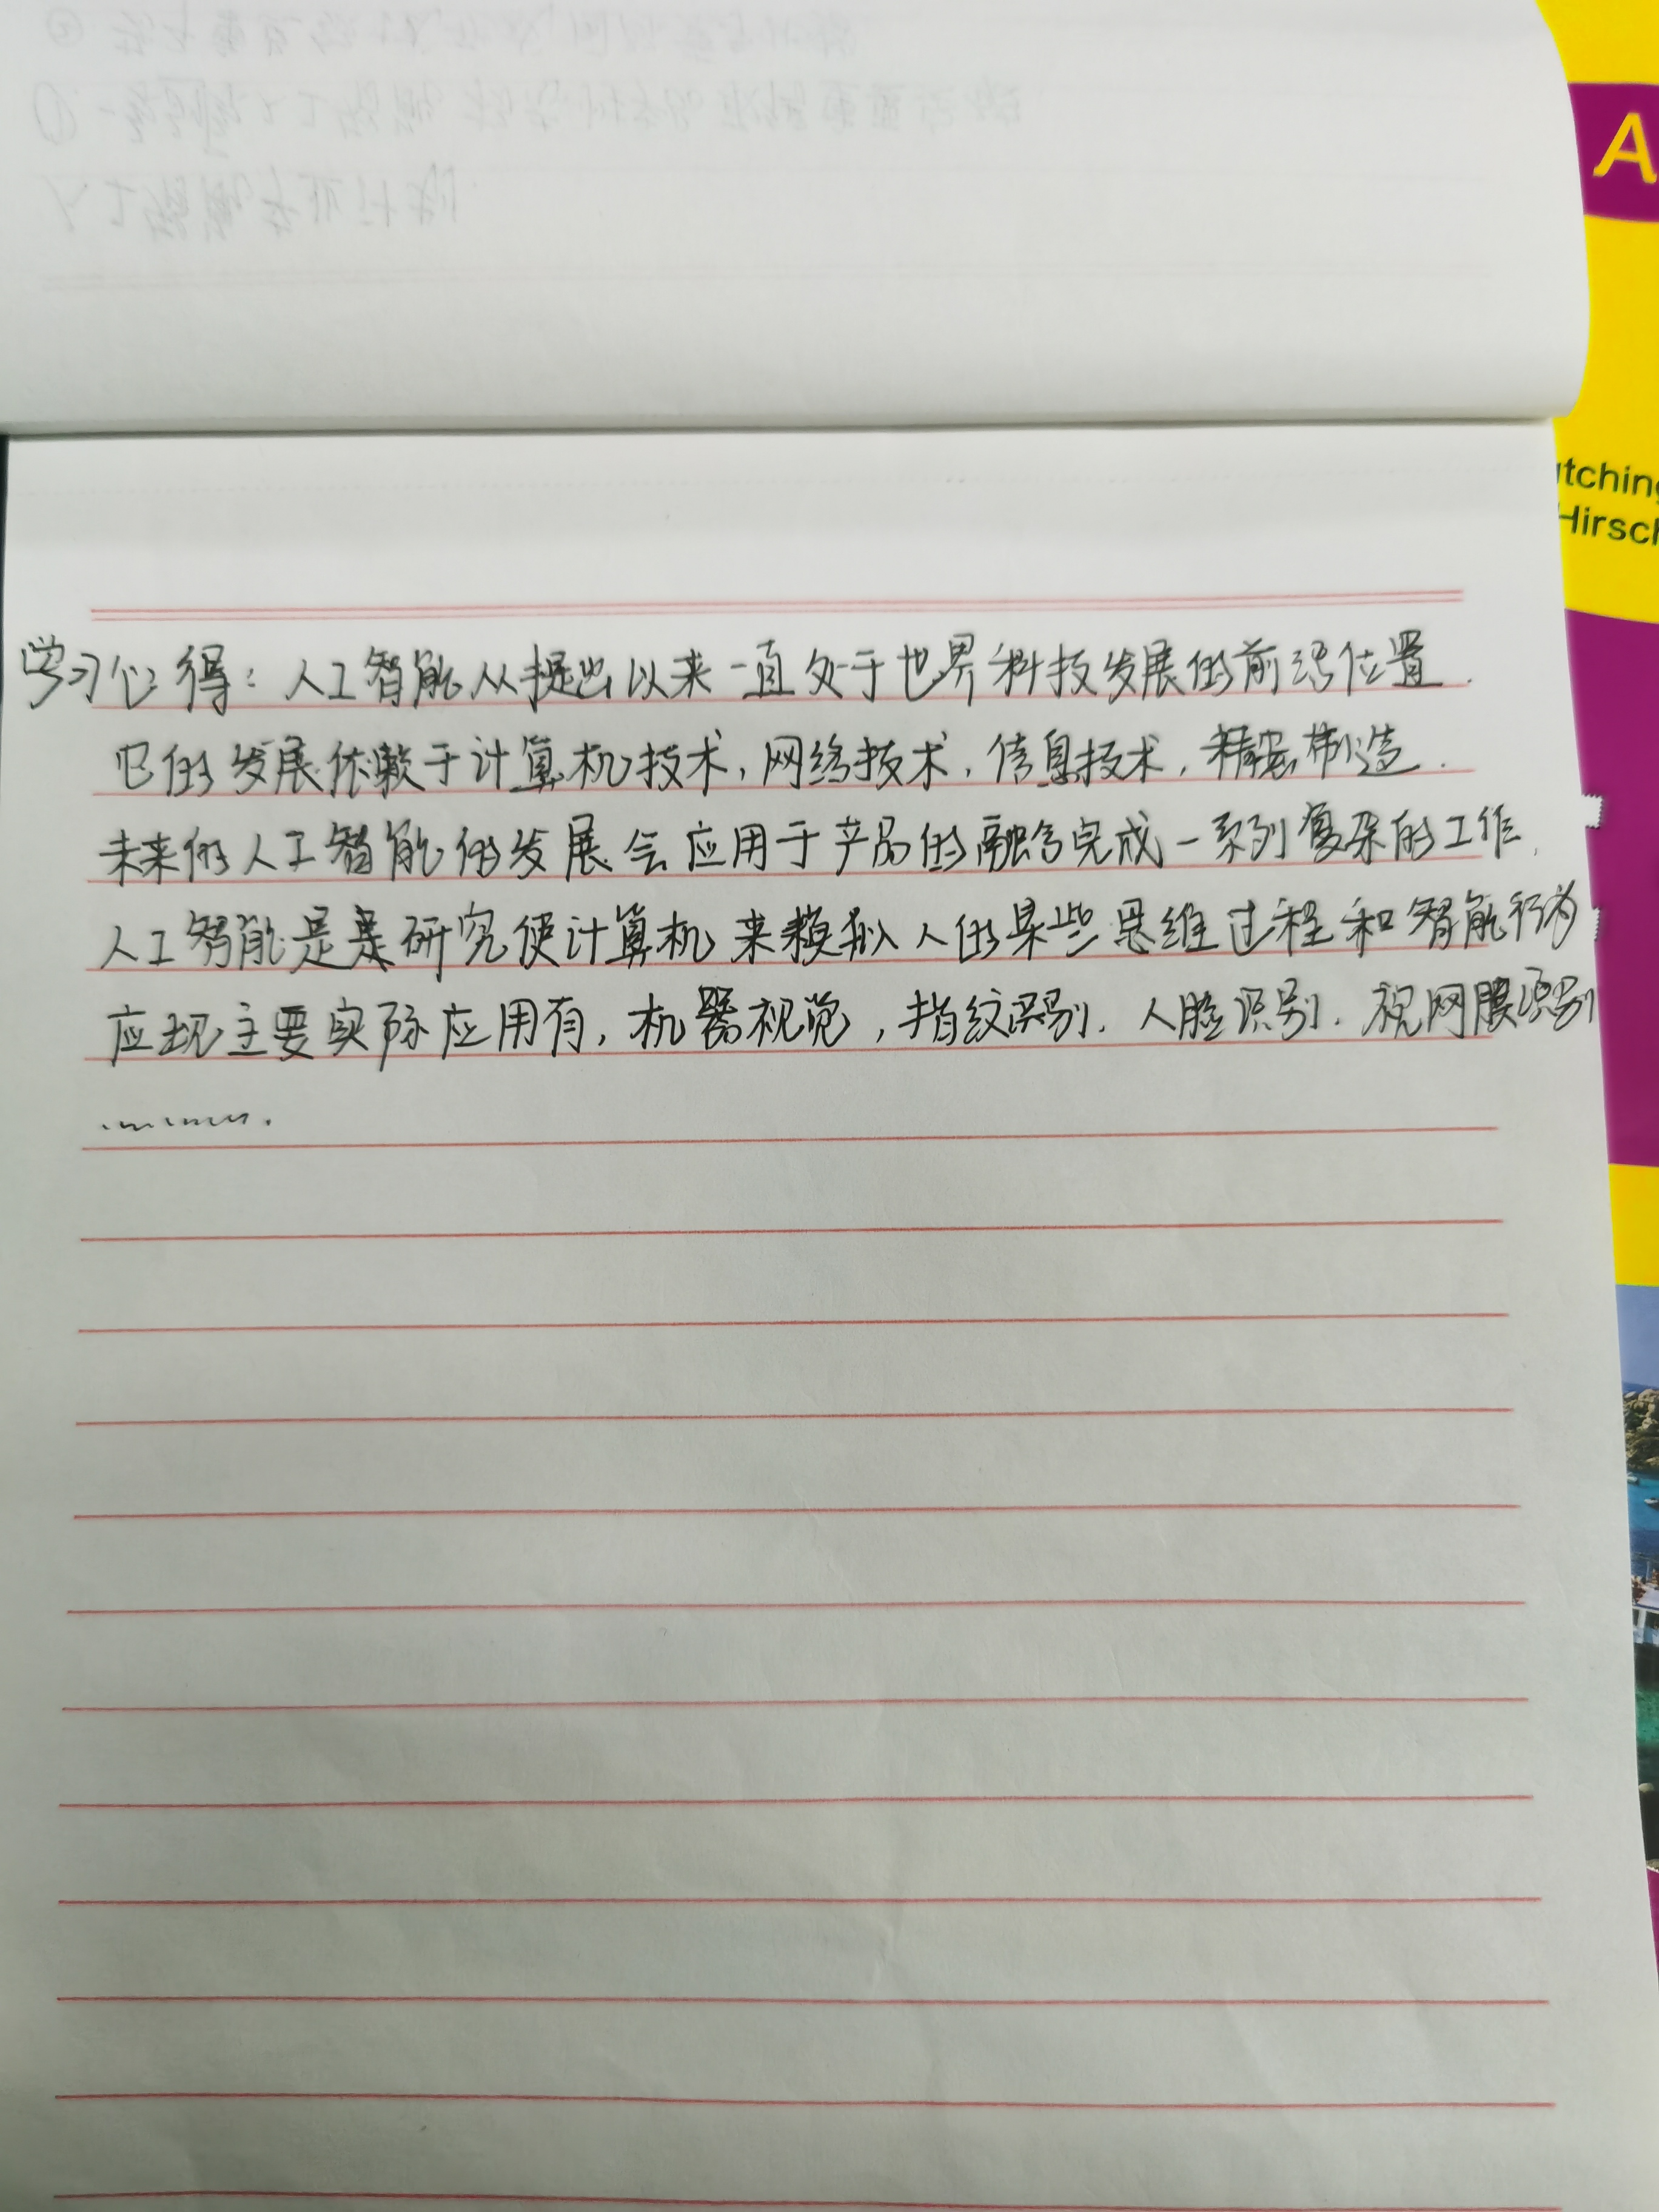 学习心得：人工智能从提出以来一直处于世界科技发展的前沿位置.
它的发展依赖于计算机技术,网络技术,信息技术,精密制造.
未来的人工智能的发展会应用于产品的融合完成一系列复杂的工作,
人工智能是是研究使计算机来模拟人的某些思维过程和智能行为
应现主要实际应用有,机器视觉,指纹识别.人脸识别.视网膜识别
…….
A
tching
Hirsch